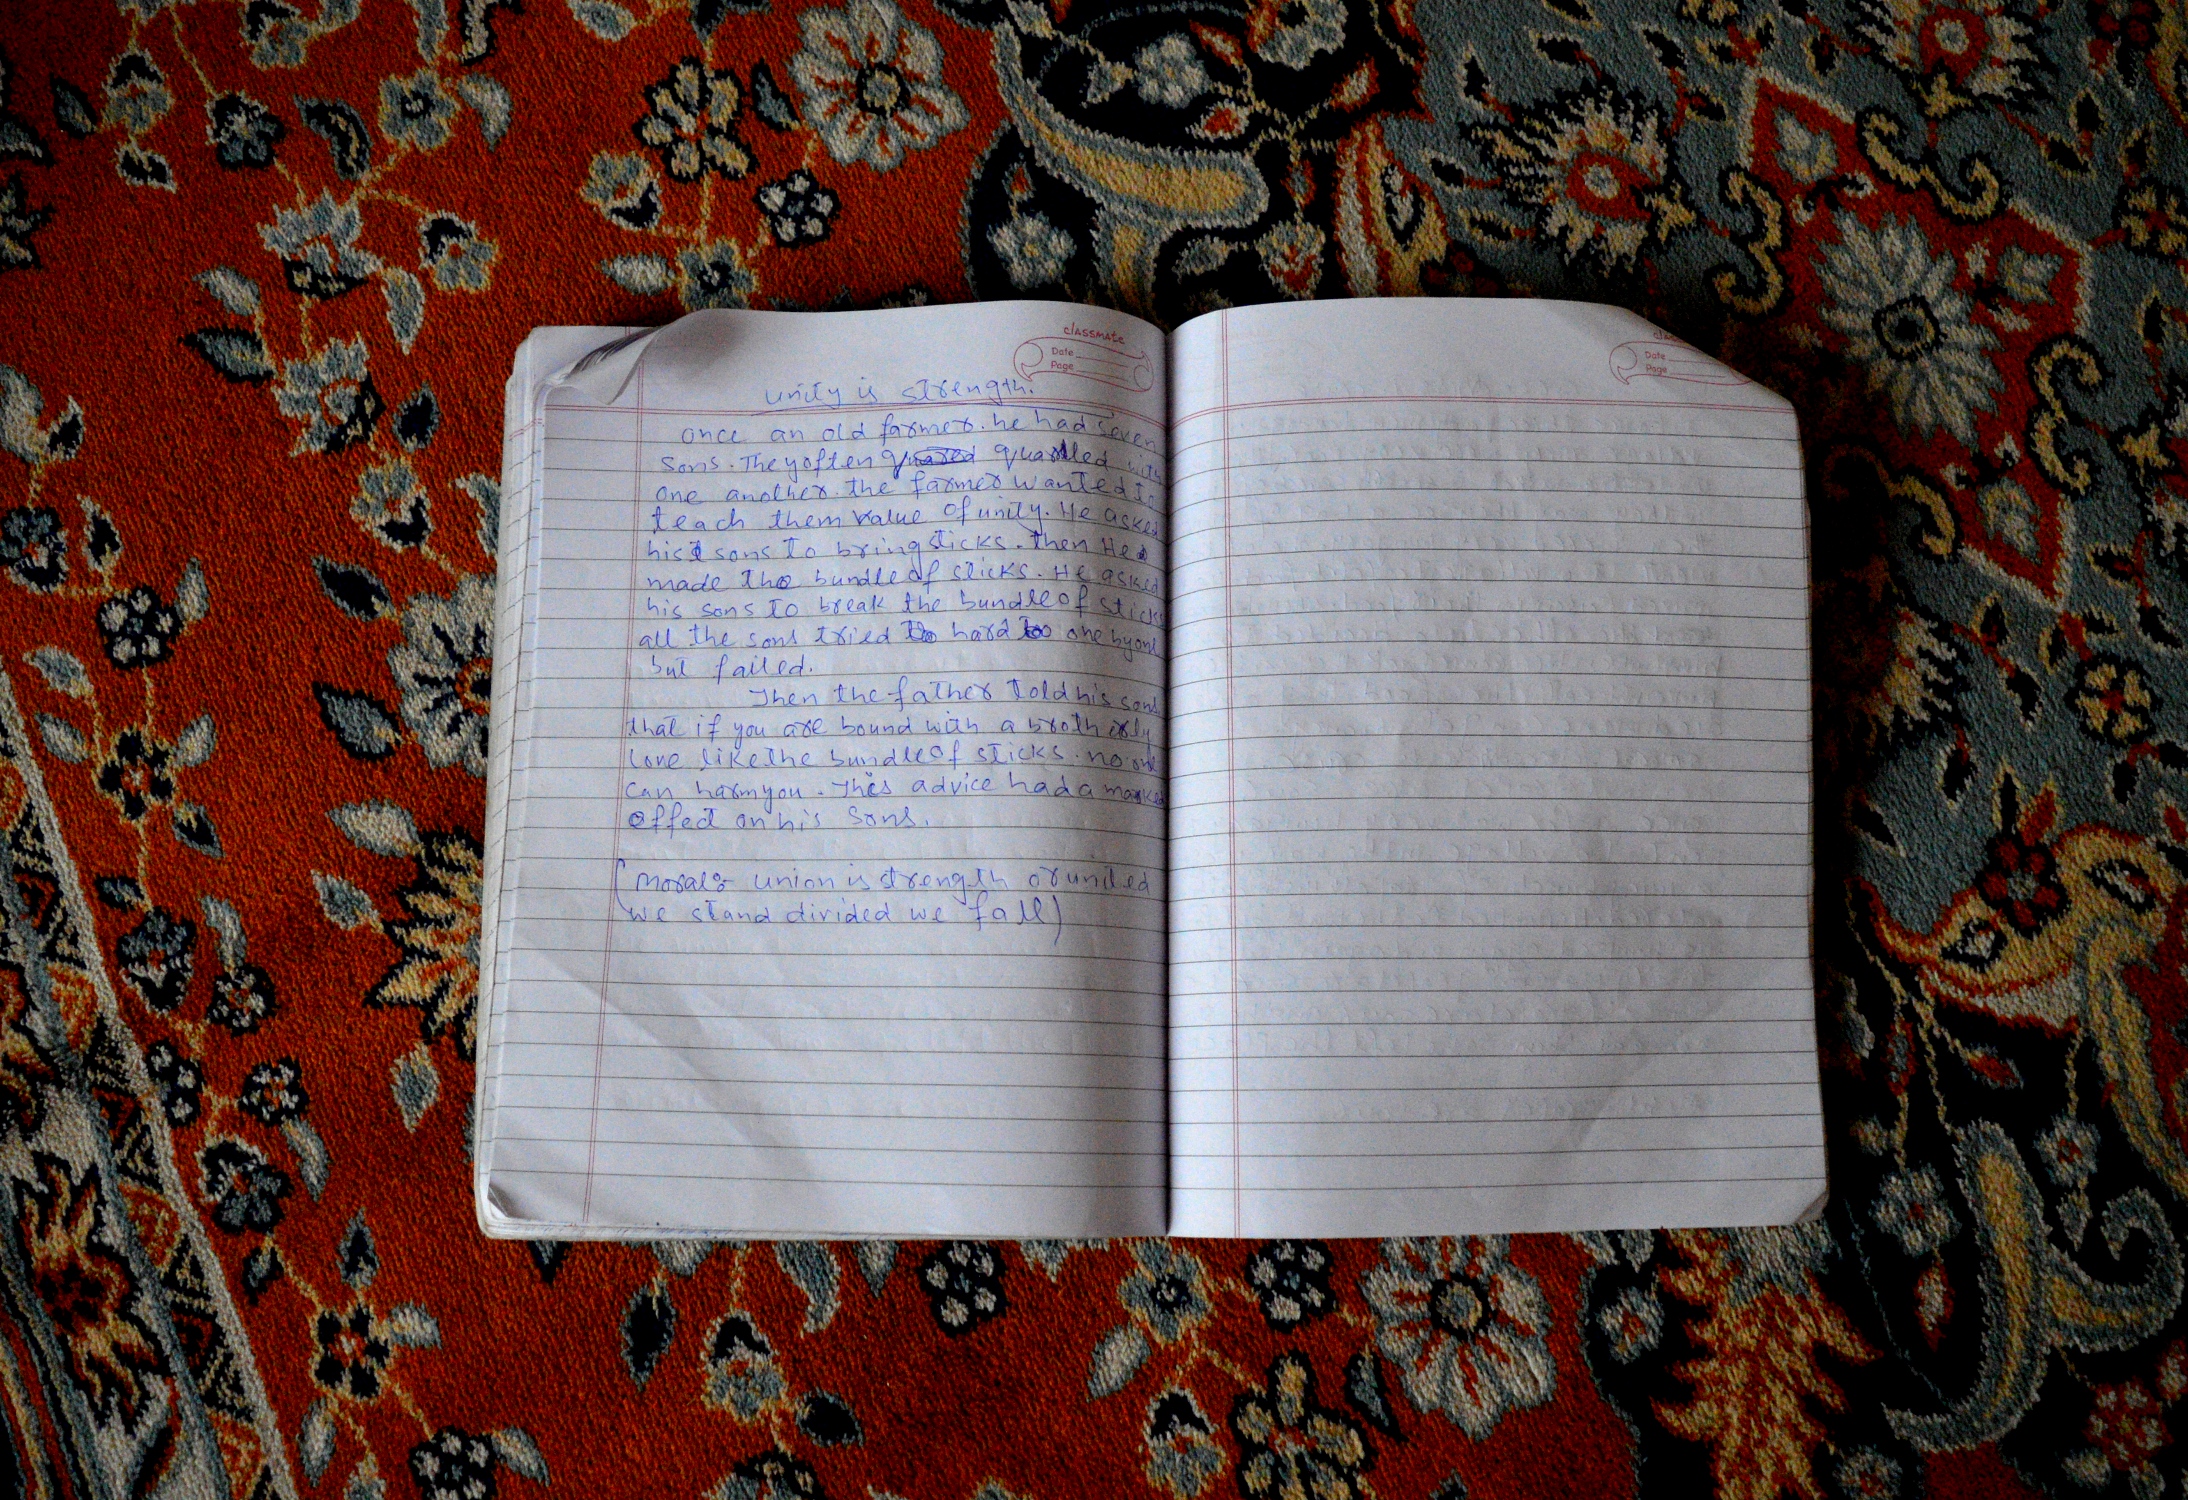 classmate
Date
Page
unity is strength.
once an old farmer. he had seven
sons. They often quared quarlled with
one another. the farmer wanted to
teach them value of unity. He asked
his sons to bring sticks. then He
made the bundle of sticks. He asked
his sons to break the bundle of sticks
all the sons tried to hard to one by one
but failed.
Then the father told his sons
that if you are bound with a brotherly
love like the bundle of sticks. no one
can harm you. This advice had a marked
effect on his sons.
(Moral:- union is strength or united
we stand divided we fall)
Date
Page